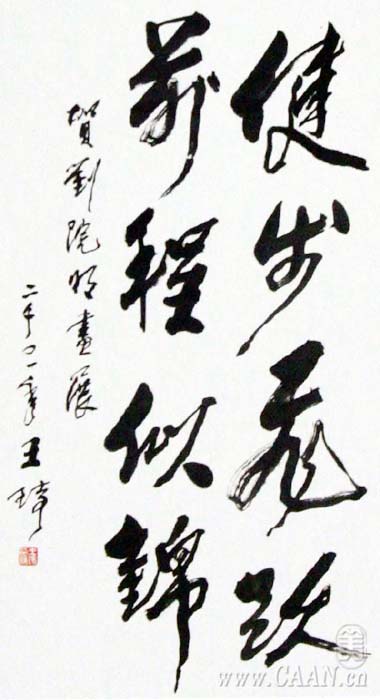 健步飛跃
前程似錦
賀劉院明畫展
二千〇一年王琦
美
www.CAAN.cn